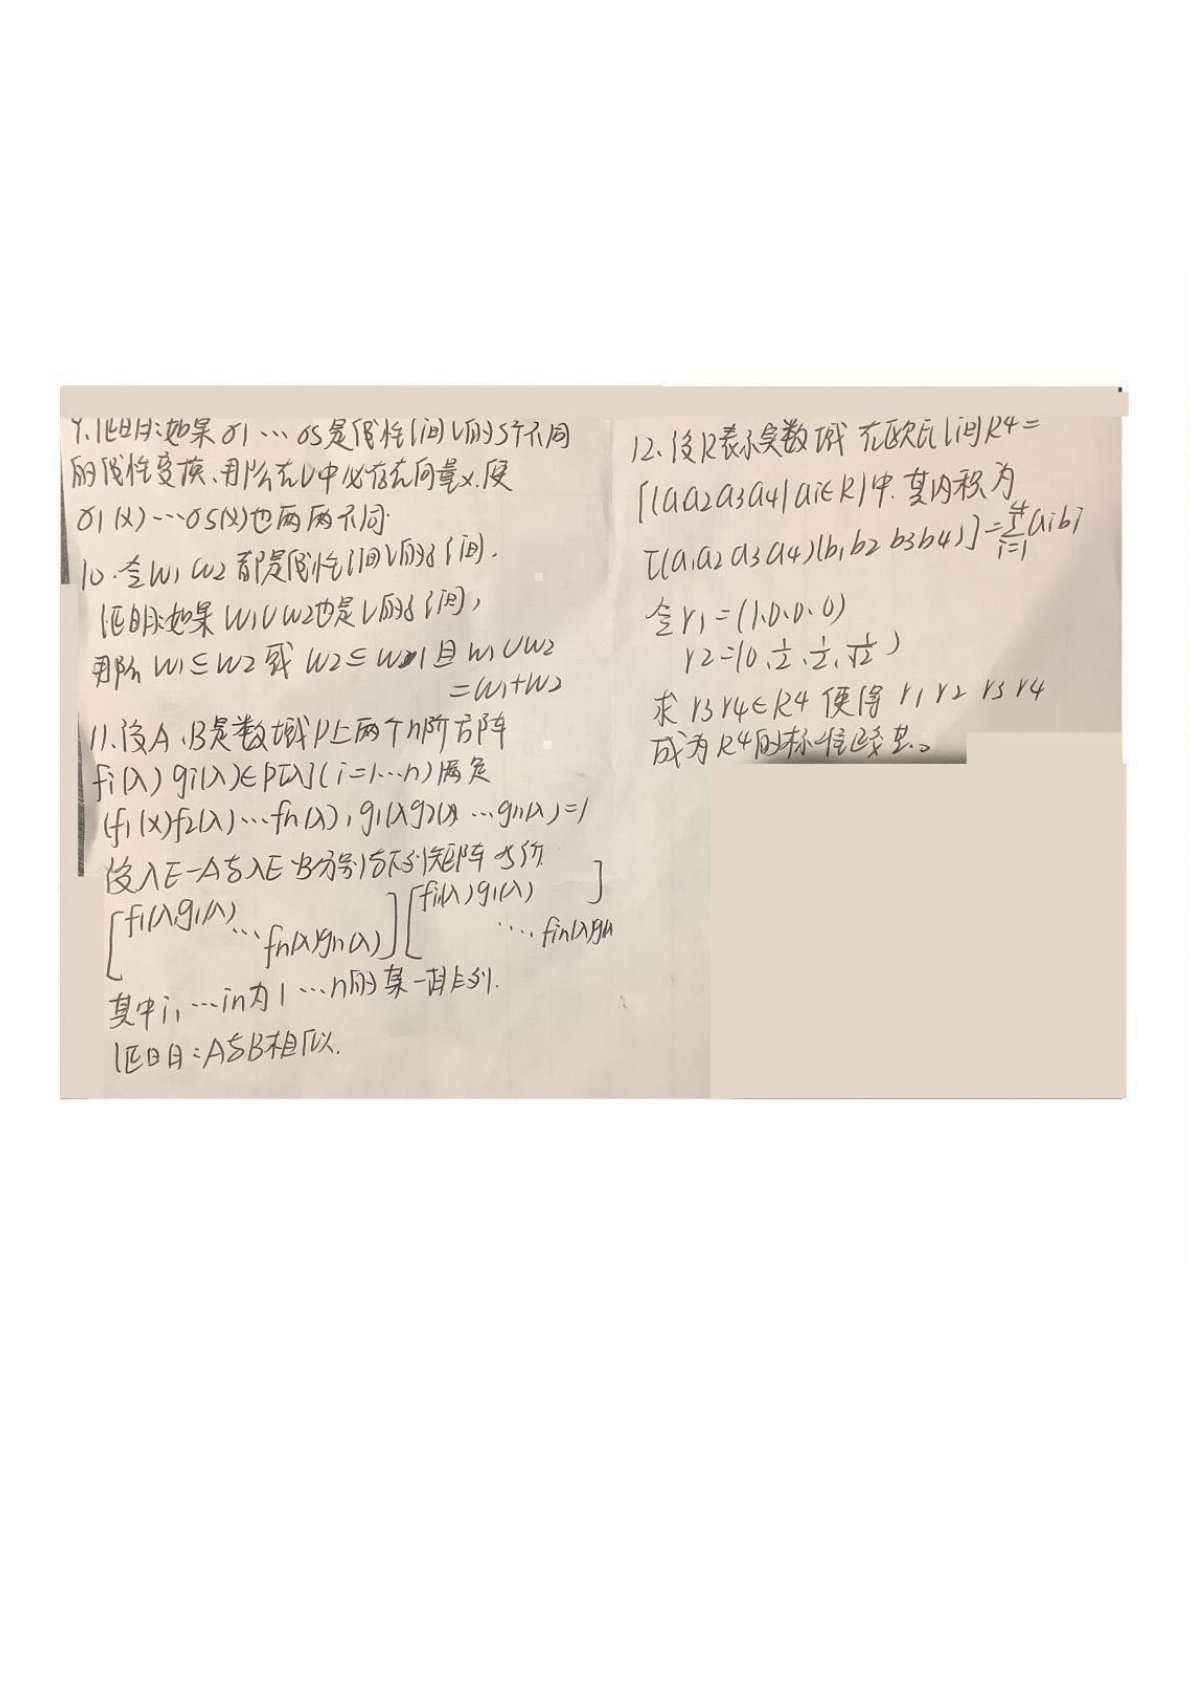 9.证明:如果σ1…σs是线性空间V的s个不同
的线性变换,那么在V中必存在向量x,使
σ1(x)…σs(x)也两两不同.
10.令W1 W2都是线性空间V的子空间.
证明:如果W1∪W2也是V的子空间,
那么W1⊆W2或W2⊆W1且W1∪W2
=W1+W2
11.设A、B是数域P上两个n阶方阵
fi(λ) gi(λ)∈P[λ](i=1…n)满足
(f1(x)f2(λ)…fn(λ),g1(λg2(λ)…gn(λ)=1
设λE-A与λE-B分别与下列矩阵等价
[f1(λ)g1(λ)
⋱ fn(λ)gn(λ)] [fi(λ)g1(λ)
⋱ fin(λ)gn]
其中i1…in为1…n的某一排列.
证明:A与B相似.
12.设R表示实数域 在欧氏空间R4=
{(a1a2a3a4|ai∈R}中.其内积为
[(a1a2a3a4)(b1b2b3b4)]=∑⁴i=1 aibi
令r1=(1.0.0.0)
r2=(0.1/2.1/2.√1/2)
求r3r4∈R4使得r1r2r3r4
成为R4的标准正交基。